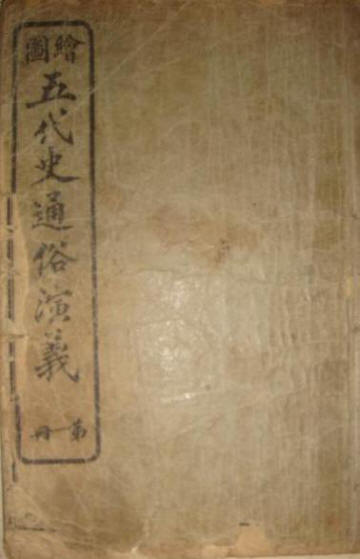 繪圖
五代史通俗演義
第一冊